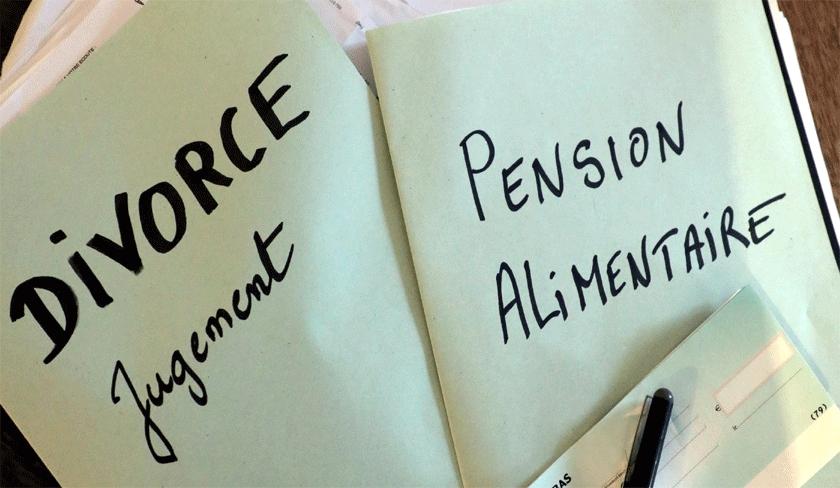 DiVORCE
Jugement
PENSION
ALiMENTAiRE
€
(79)